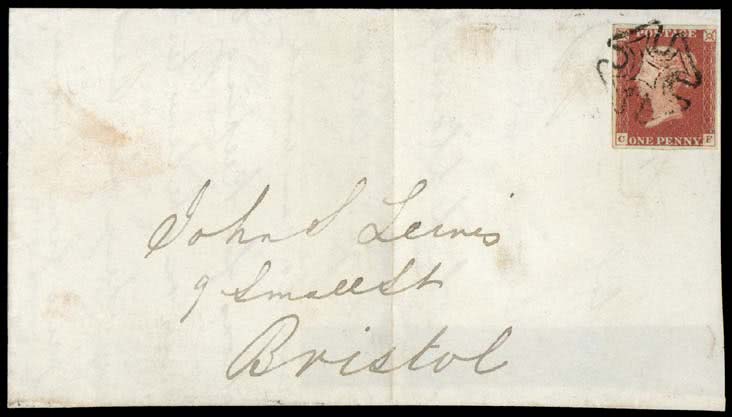 POSTAGE
C F
ONE PENNY
John S Lewis
9 Small St
Bristol